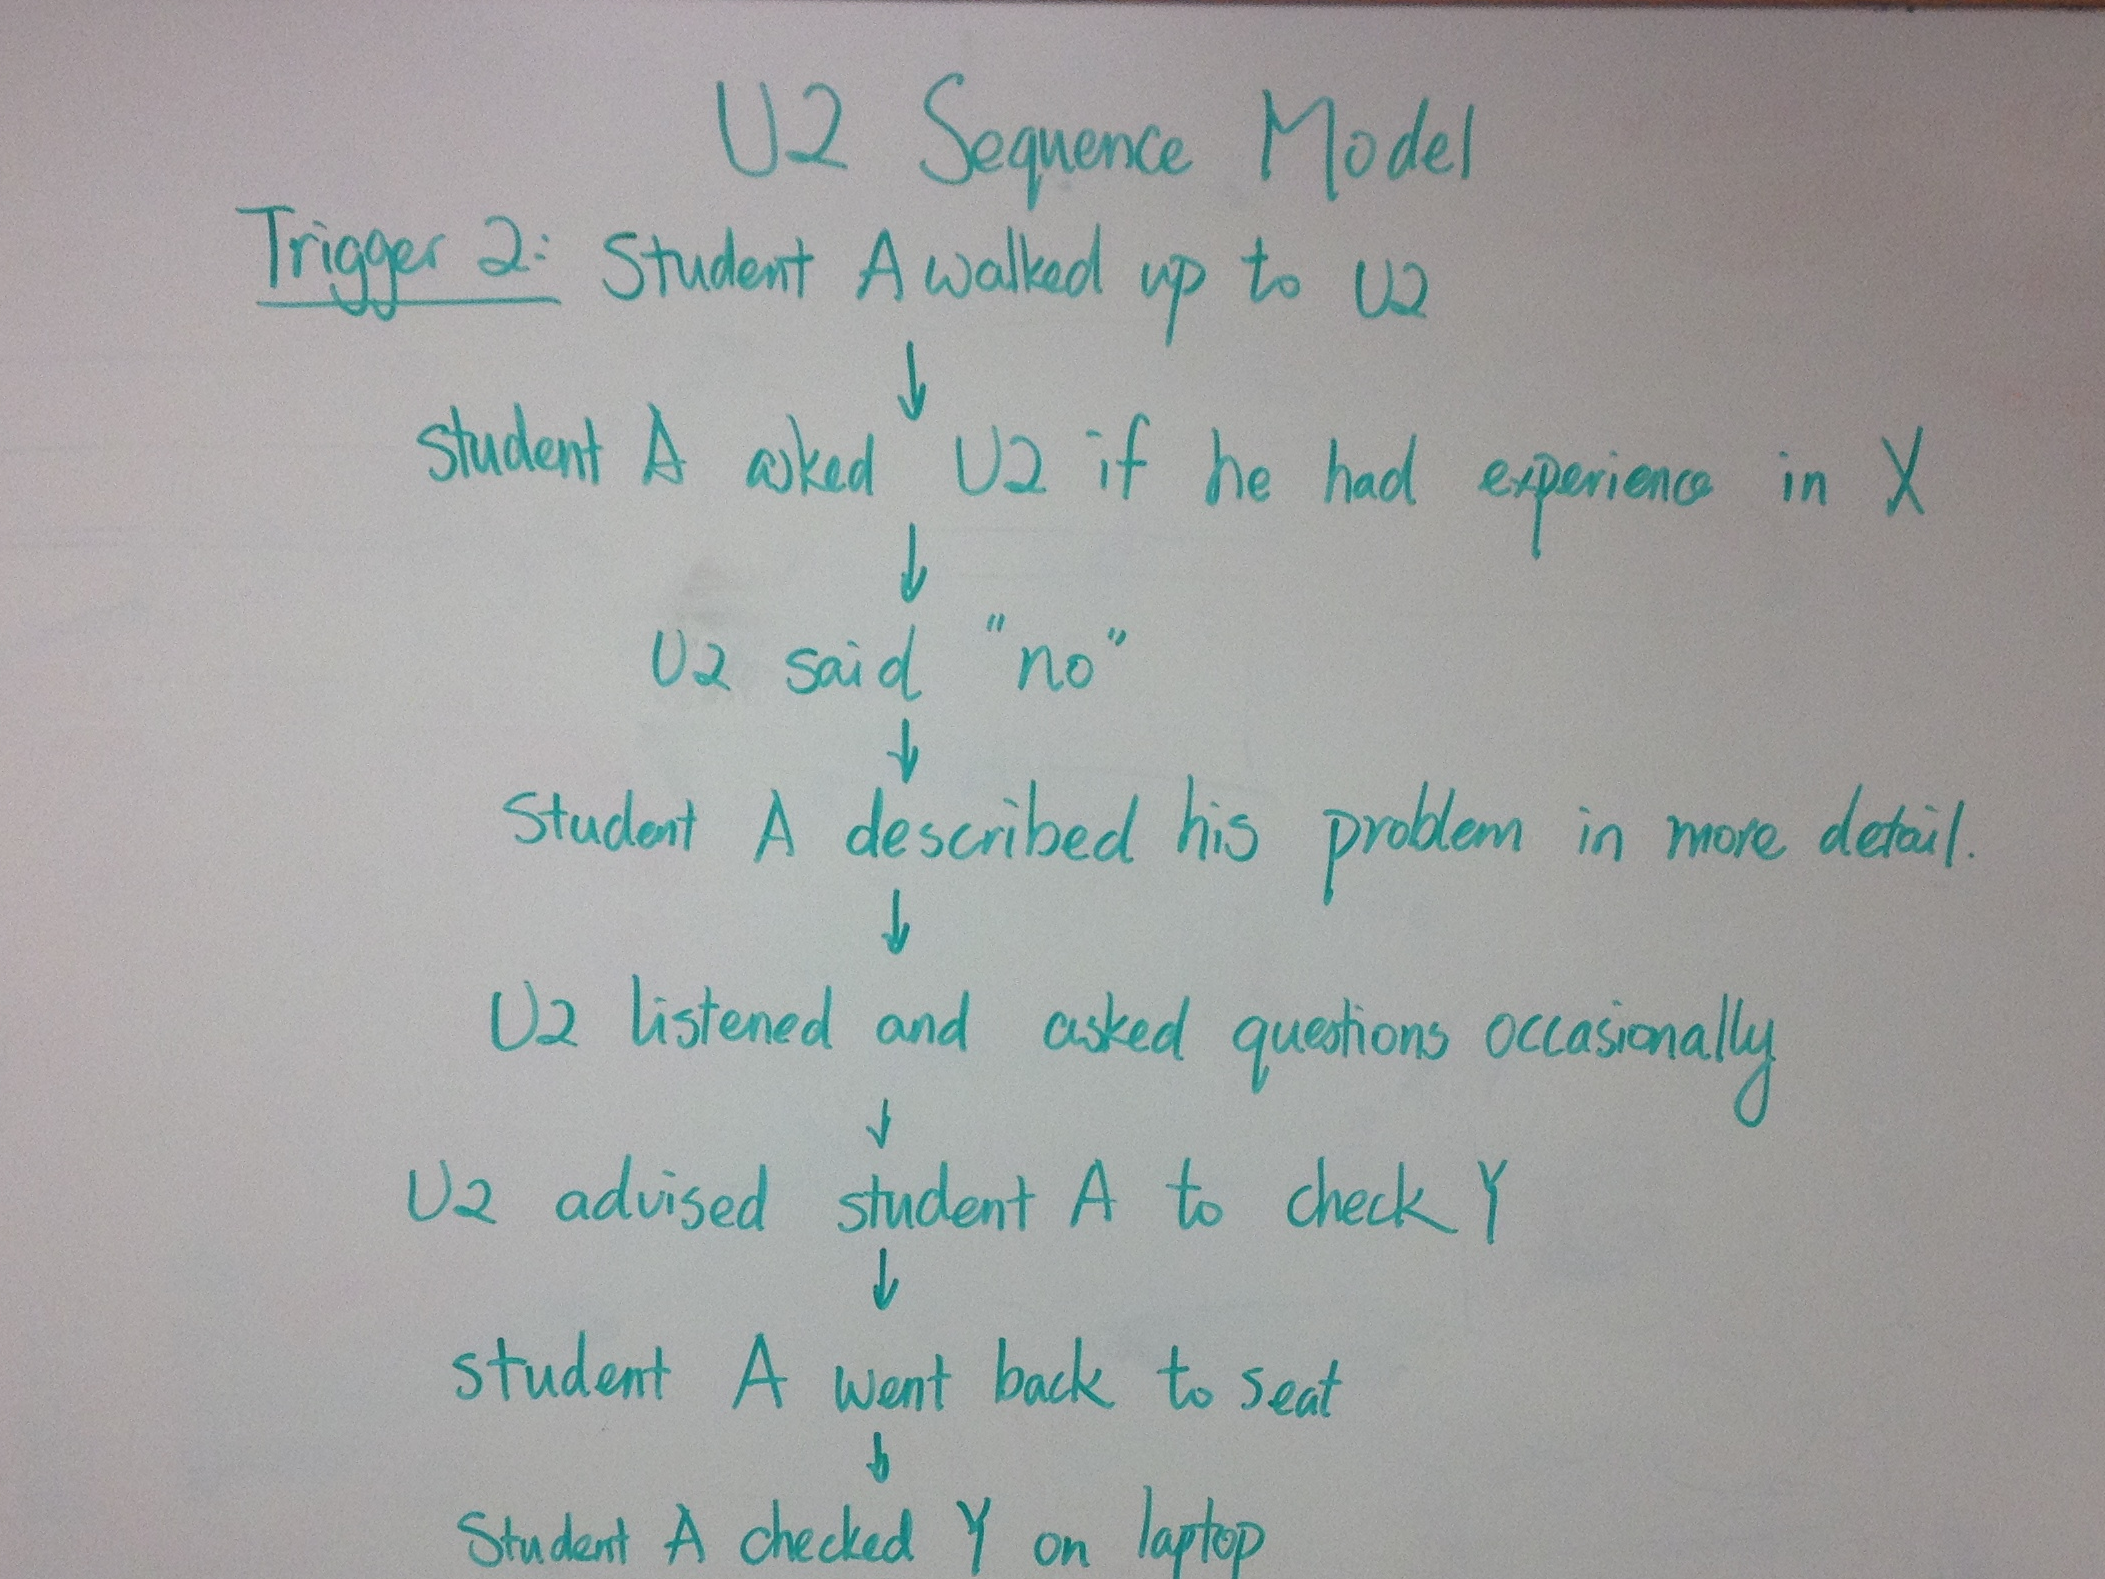 U2 Sequence Model
Trigger 2: Student A walked up to U2
↓
student A asked U2 if he had experience in X
↓
U2 said "no"
↓
Student A described his problem in more detail.
↓
U2 listened and asked questions occasionally
↓
U2 advised student A to check Y
↓
student A went back to seat
↓
Student A checked Y on laptop